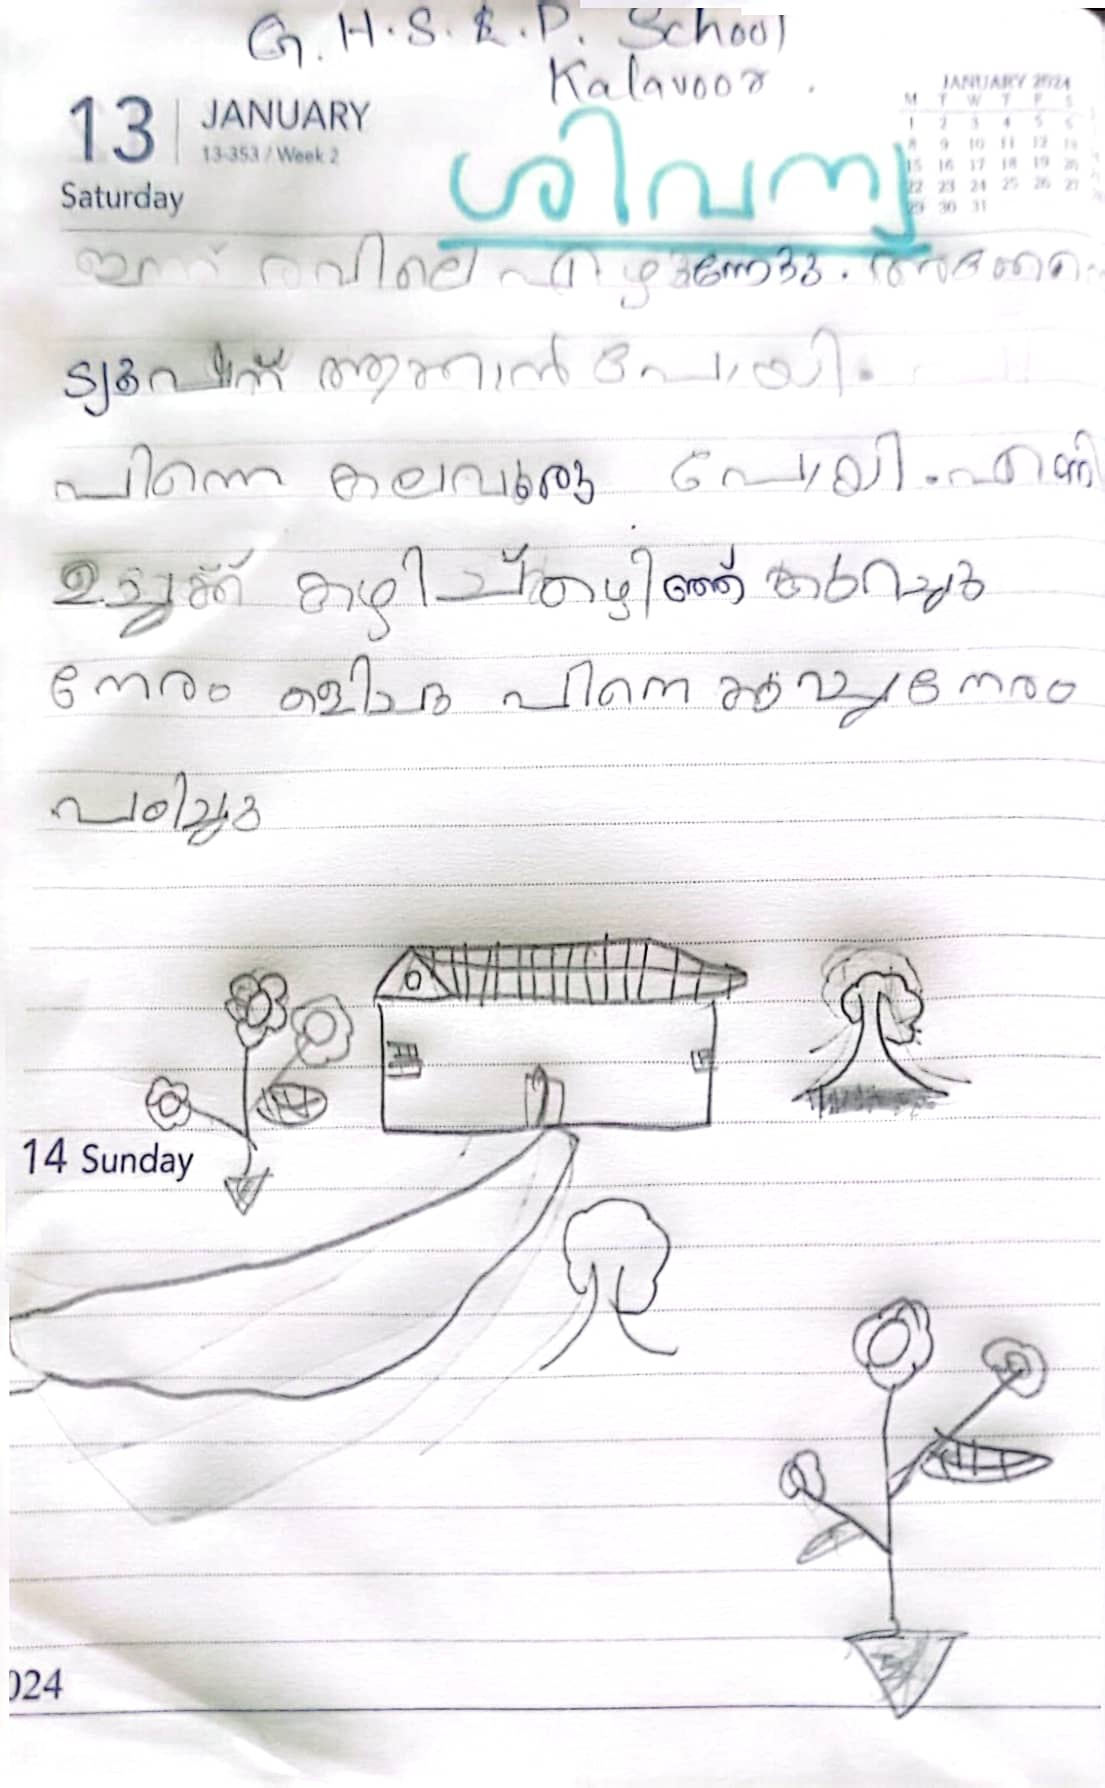 G.H.S.L.P. School
Kalavoor.
13 JANUARY
13-353 / Week 2
Saturday
JANUARY 2024
M T W T F S
1 2 3 4 5 6
8 9 10 11 12 13
15 16 17 18 19 20
22 23 24 25 26 27
29 30 31
ശിവന്യ
ഇന്ന് രാവിലെ എഴുന്നേറ്റു.
ട്യൂഷന് ഞാൻ പോയി.
പിന്നെ കലവൂരു പോയി.
ഉച്ചക്ക് കഴിച്ച്കഴിഞ്ഞ് കുറച്ചു
നേരം കളിച്ചു പിന്നെ കുറച്ചുനേരം
പഠിച്ചു
14 Sunday
024